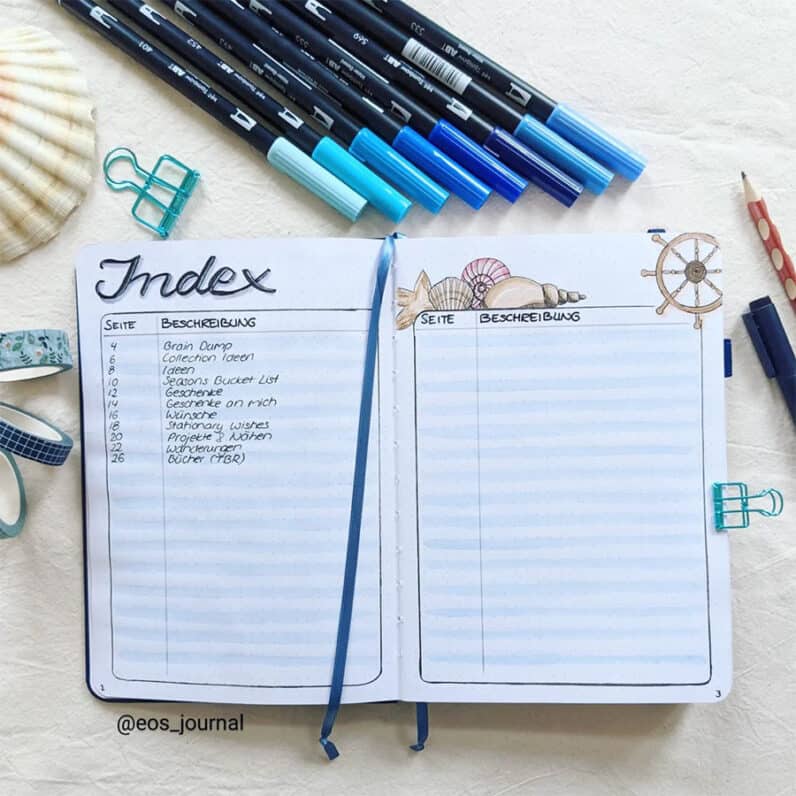 401
452
569
533
Tombow ABT
Tombow ABT
Tombow ABT
Index
SEITE BESCHREIBUNG
4 Brain Dump
6 Collection Ideen
8 Ideen
10 Seasons Bucket List
12 Geschenke
14 Geschenke an mich
16 Wünsche
18 Stationary Wishes
20 Projekte & Nähen
22 Wanderungen
26 Bücher (TBR)
2
SEITE BESCHREIBUNG
3
@eos_journal